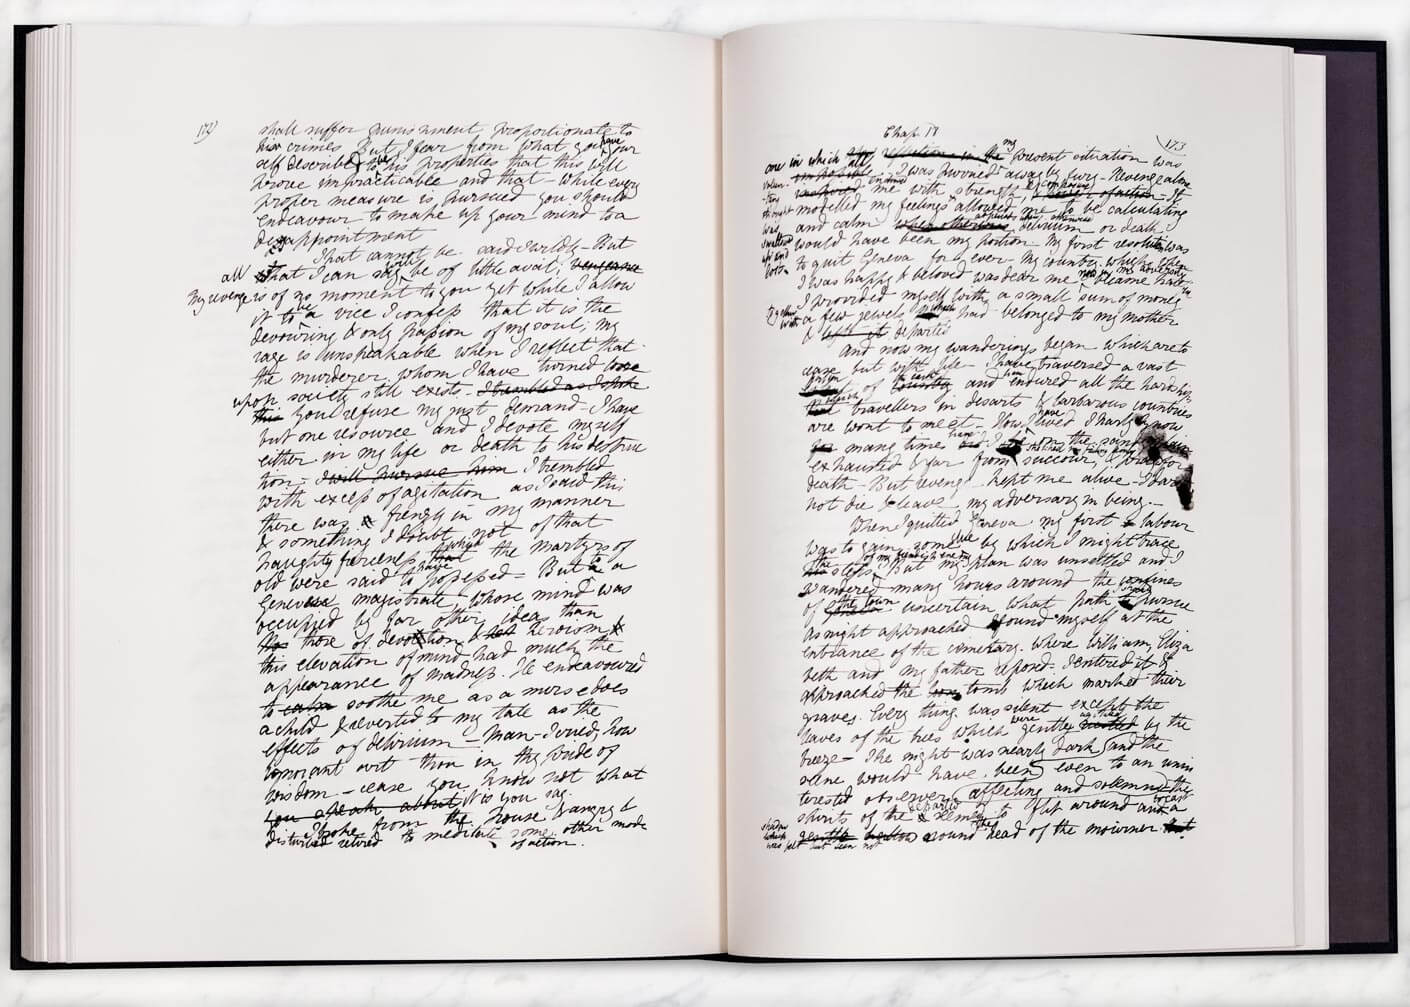 172)
shall suffer punishment proportionate to
his crimes But I fear from what you have your
self described to be his properties that this will
prove impracticable and that while every
proper measure is pursued you should
endeavour to make up your mind to a
disappointment
That cannot be said I wildly - But
all that I can say will be of little avail; vengeance
my revenge is of no moment to you yet while I allow
it to be a vice I confess that it is the
devouring & only passion of my soul; my
rage is unspeakable when I reflect that
the murderer whom I have turned loose
upon society still exists. I trembled as I spoke
this You refuse my just demand - I have
but one resource and I devote myself
either in my life or death to his destruc
tion - I will pursue him I trembled
with excess of agitation as I said this
there was a frenzy in my manner
& something I doubt not of that
haughty fierceness that which the martyrs of
old were said to have possessed = But to a
Genevese magistrate whose mind was
occupied by far other ideas than
those of devotion & heroism
this elevation of mind had much the
appearance of madness. He endeavoured
to calm soothe me as a nurse does
a child & reverted to my tale as the
effects of delirium - Man - I cried, how
ignorant art thou in thy pride of
wisdom - cease you know not what
you speak about it is you say.
I broke from the house & angry &
disturbed retired to meditate some other mode
of action.
Chap. 17
173
my
one in which all reflection in the present situation was
volun - I was hurried away by fury - Revenge alone
tary me with strength & composure it
thought modelled my feelings allowed me to be calculating
was and calm when otherwise delirium or death
swallowed would have been my portion. My first resolution was
up and to quit Geneva for ever - My country which when
lost. I was happy & beloved was dear me now in my adversity became hate
I provided myself with a small sum of money
with a few jewels which had belonged to my mother
& left it departed
And now my wanderings began which are to
cease but with life - I have traversed a vast
portion of the earth country and have endured all the hardships
which travellers in desarts & barbarous countries
are wont to meet - How I have lived I hardly know
many times have I on the sandy plain
exhausted & far from succour, & prayed for
death - But revenge kept me alive - I dare
not die & leave my adversary in being. -
When I quitted Geneva my first labour
was to gain some clue by which I might trace
the steps of my fiendish enemy But my plan was unsettled and I
wandered many hours around the confines
of the town uncertain what path I should pursue
As night approached I found myself at the
entrance of the cemetary where William, Eliza
beth and my father reposed. I entered it &
approached the tomb which marked their
graves. Every thing was silent except the
leaves of the trees which were gently agitated by the
breeze - The night was nearly dark and the
scene would have been even to an unin
terested observer affecting and solemn the
spirits of the departed seemed to flit around and to cast a
shadow which was felt but seen not around the head of the mourner